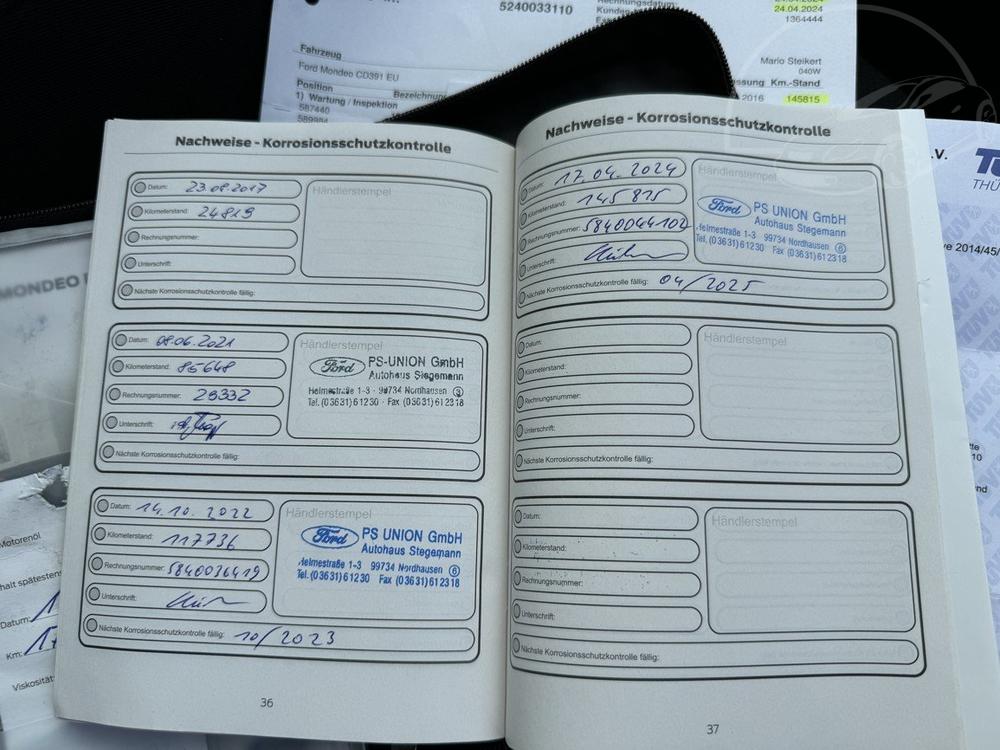 5240033110
Rechnungsdatum:
24.04.2024
24.04.2024
1364444
Fahrzeug
Ford Mondeo CD391 EU
Position
Bezeichnung
1) Wartung / Inspektion
587440
Mario Steikert
040W
Km.-Stand
2016
145815
Nachweise - Korrosionsschutzkontrolle
Datum: 23.08.2017
Händlerstempel
Kilometerstand: 24819
Rechnungsnummer:
Unterschrift:
Nächste Korrosionsschutzkontrolle fällig:
Datum: 08.06.2021
Händlerstempel
Kilometerstand: 85648
Ford PS-UNION GmbH
Autohaus Stegemann
Rechnungsnummer: 29332
Helmestraße 1-3 · 99734 Nordhausen 3
Tel. (03631) 61230 · Fax (03631) 612318
Unterschrift:
Nächste Korrosionsschutzkontrolle fällig:
Datum: 14.10.2022
Händlerstempel
Kilometerstand: 117736
Ford PS UNION GmbH
Autohaus Stegemann
Rechnungsnummer: 5840036419
Helmestraße 1-3 99734 Nordhausen 6
Tel. (03631) 61230 Fax (03631) 612318
Unterschrift:
Nächste Korrosionsschutzkontrolle fällig: 10/2023
36
Nachweise - Korrosionsschutzkontrolle
Datum: 17.04.2024
Händlerstempel
Kilometerstand: 145815
Ford PS UNION GmbH
Autohaus Stegemann
Rechnungsnummer: 5840044102
Helmestraße 1-3 99734 Nordhausen 6
Tel. (03631) 61230 Fax (03631) 612318
Unterschrift:
Nächste Korrosionsschutzkontrolle fällig: 04/2025
Datum:
Händlerstempel
Kilometerstand:
Rechnungsnummer:
Unterschrift:
Nächste Korrosionsschutzkontrolle fällig:
Datum:
Händlerstempel
Kilometerstand:
Rechnungsnummer:
Unterschrift:
Nächste Korrosionsschutzkontrolle fällig:
37
MONDEO
Motorenöl
halt spätestens
Datum:
Km:
Viskosität
.V.
THÜ
ve 2014/45/